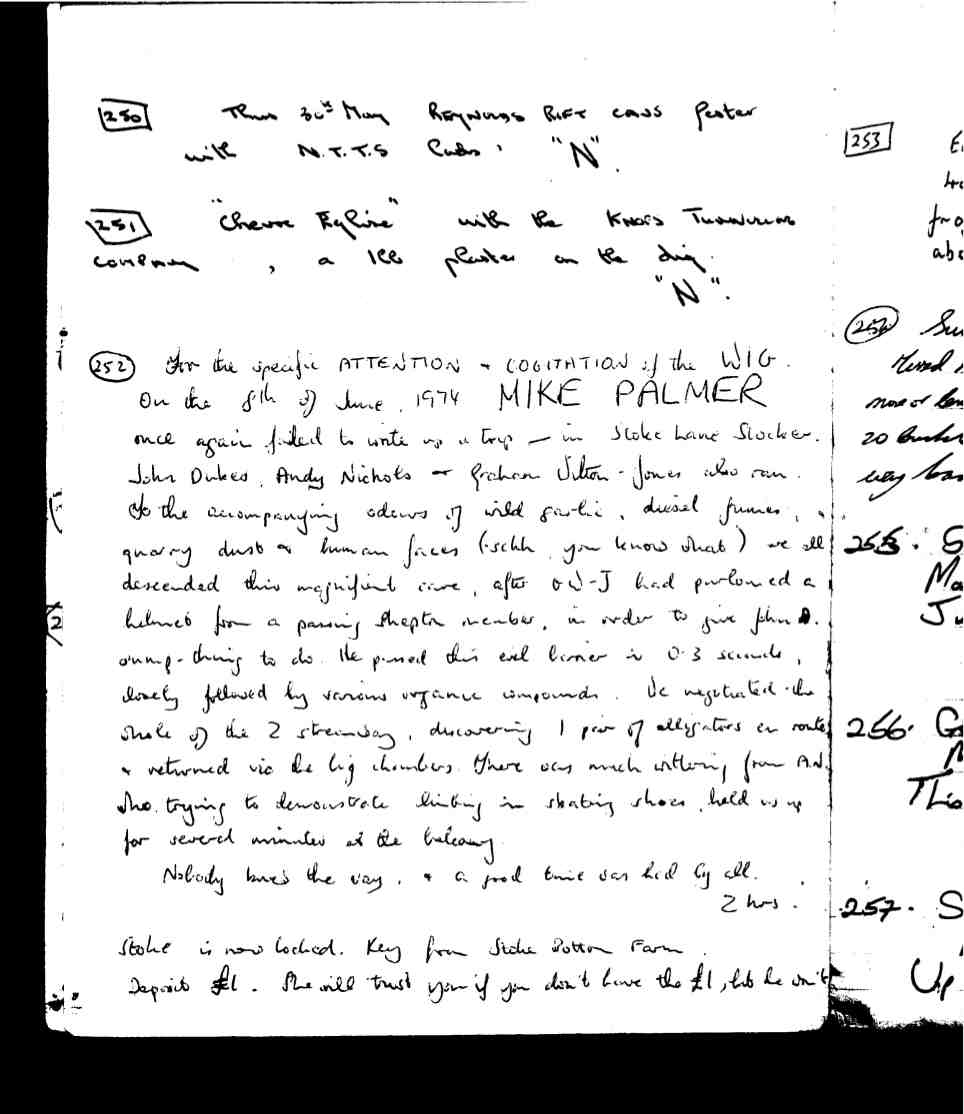 250 Thurs 30th May REYNOLDS RIFT CAVE
with N.T.T.S "N".
251 with the KNOTS TUNNELLING
COMPANY, a 1lb plaster on the dig.
"N".
252 For the specific ATTENTION + COGITATION of the WIG.
On the 8th of June, 1974 MIKE PALMER
once again failed to write up a trip – in Stoke Lane Slocker.
John Dukes, Andy Nichols + Graham Wilton-Jones also ran.
To the accompanying odours of wild garlic, diesel fumes,
quarry dust & human faeces (-schh, you know what) we all
descended this magnificent cave, after GW-J had purloined a
helmet from a passing Shepton member, in order to give John D.
sump-thing to do. He passed this evil barrier in 0.3 seconds,
closely followed by various organic compounds. We negotiated the
whole of the 2 streamway, discovering 1 pair of alligators en route,
& returned via the big chambers. There was much wittering from A.N.
who, trying to demonstrate climbing in skating shoes, held us up
for several minutes at the balcony.
Nobody knows the way, & a good time was had by all.
2 hrs.
Stoke is now locked. Key from Stoke Bottom Farm.
Deposit £1. She will trust you if you don't have the £1, but he won't
253
fro
abo
20
way
255. S
Ma
Ju
256. G
M
This
257. S
Up